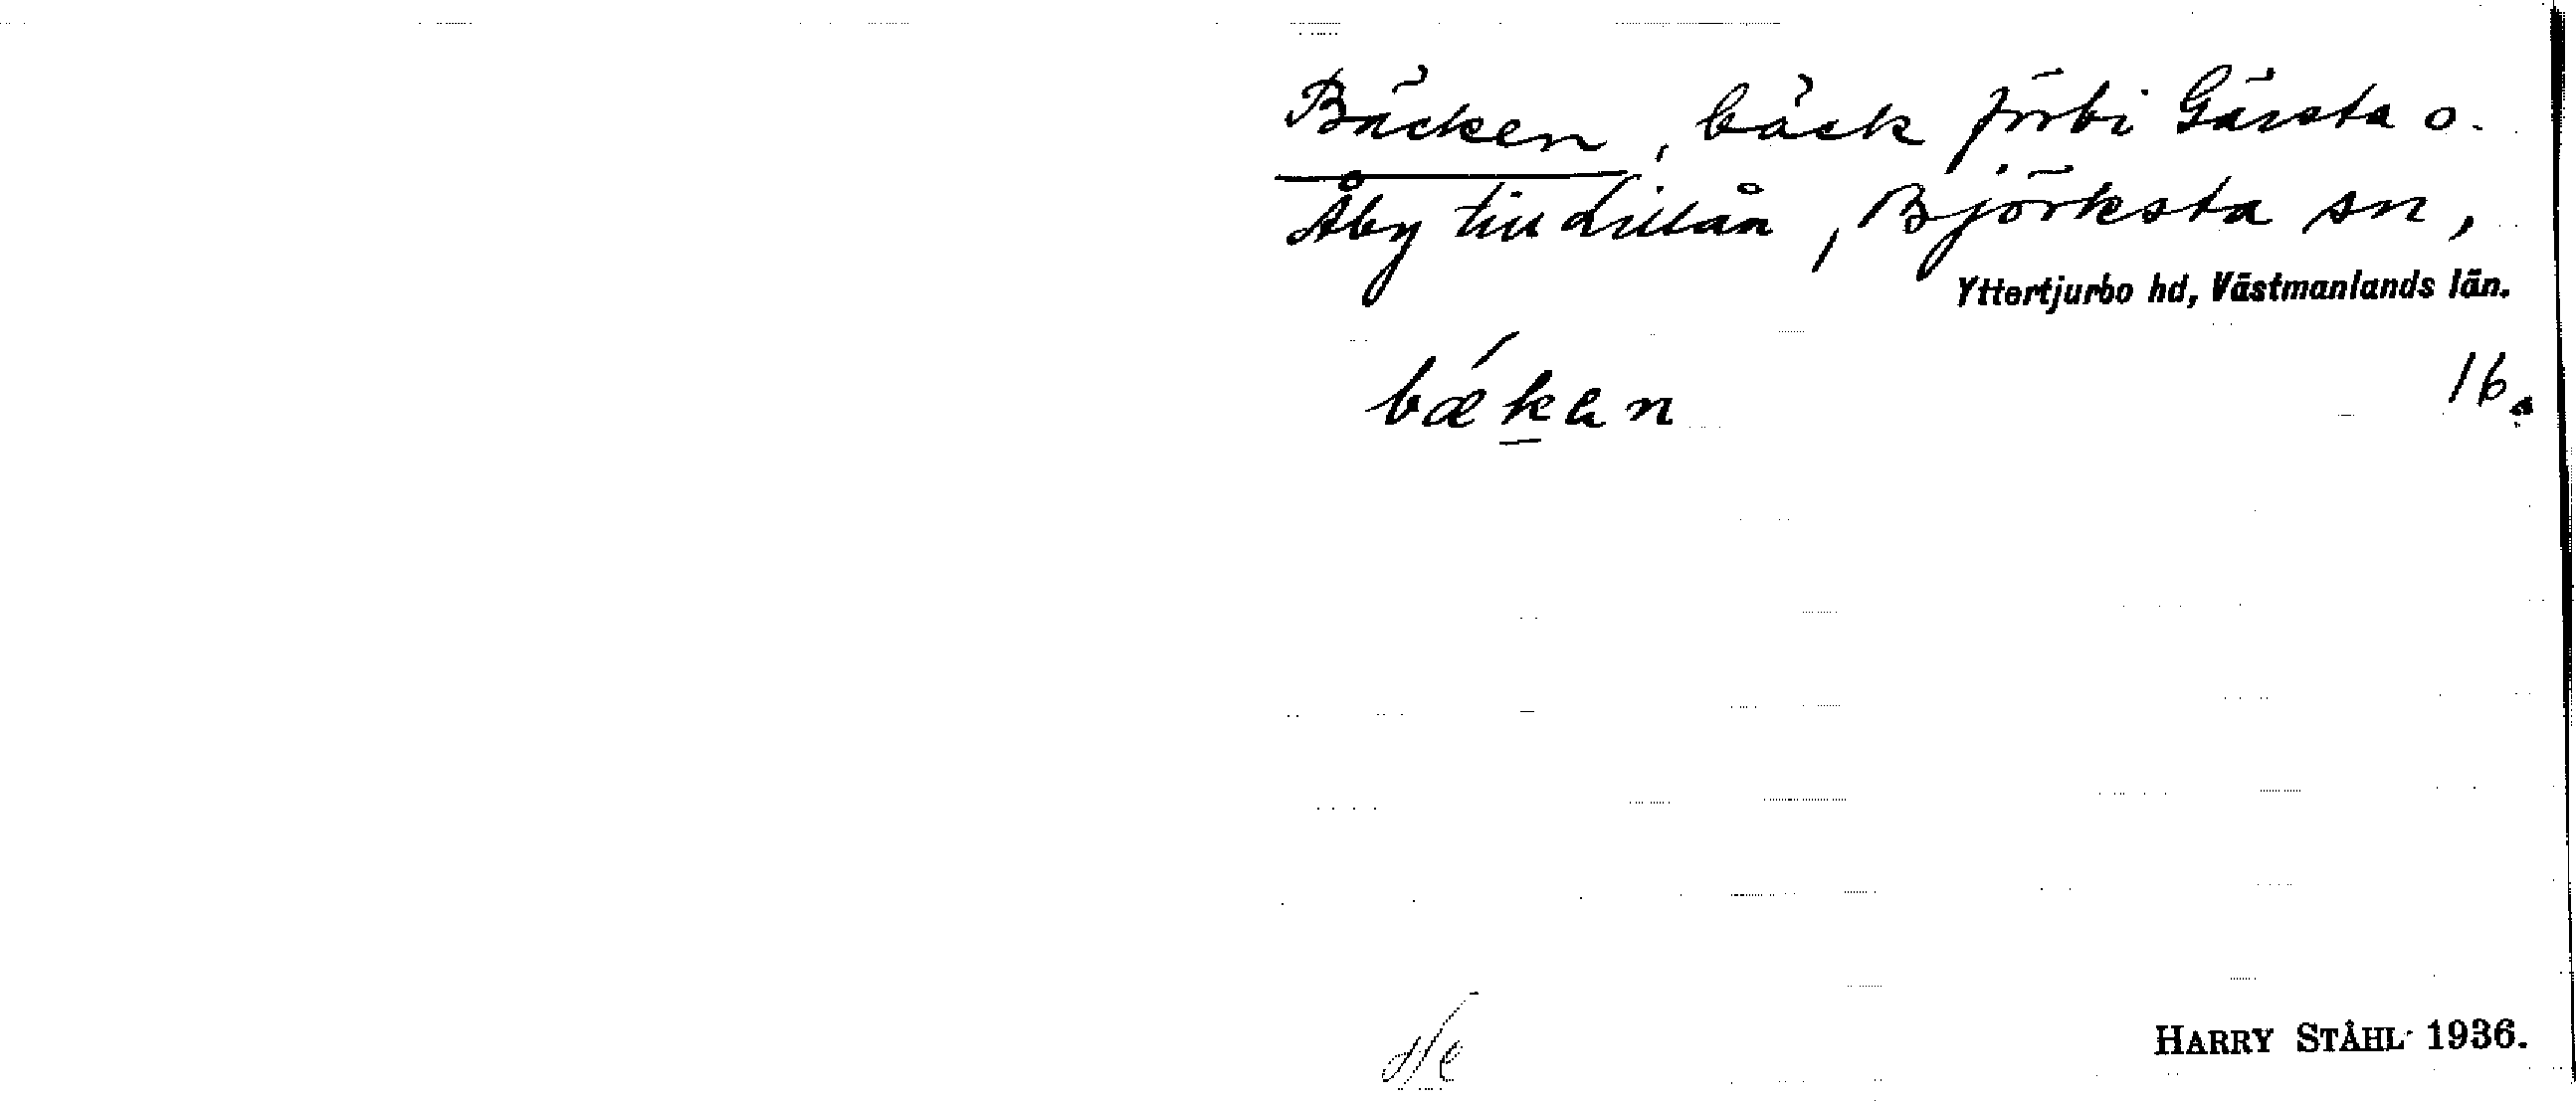 Bäcken, bäck förbi Gärsta o.
Åby till Lillån, Björksta sn,
Yttertjurbo hd, Västmanlands län.
16.
HARRY STÅHL 1936.